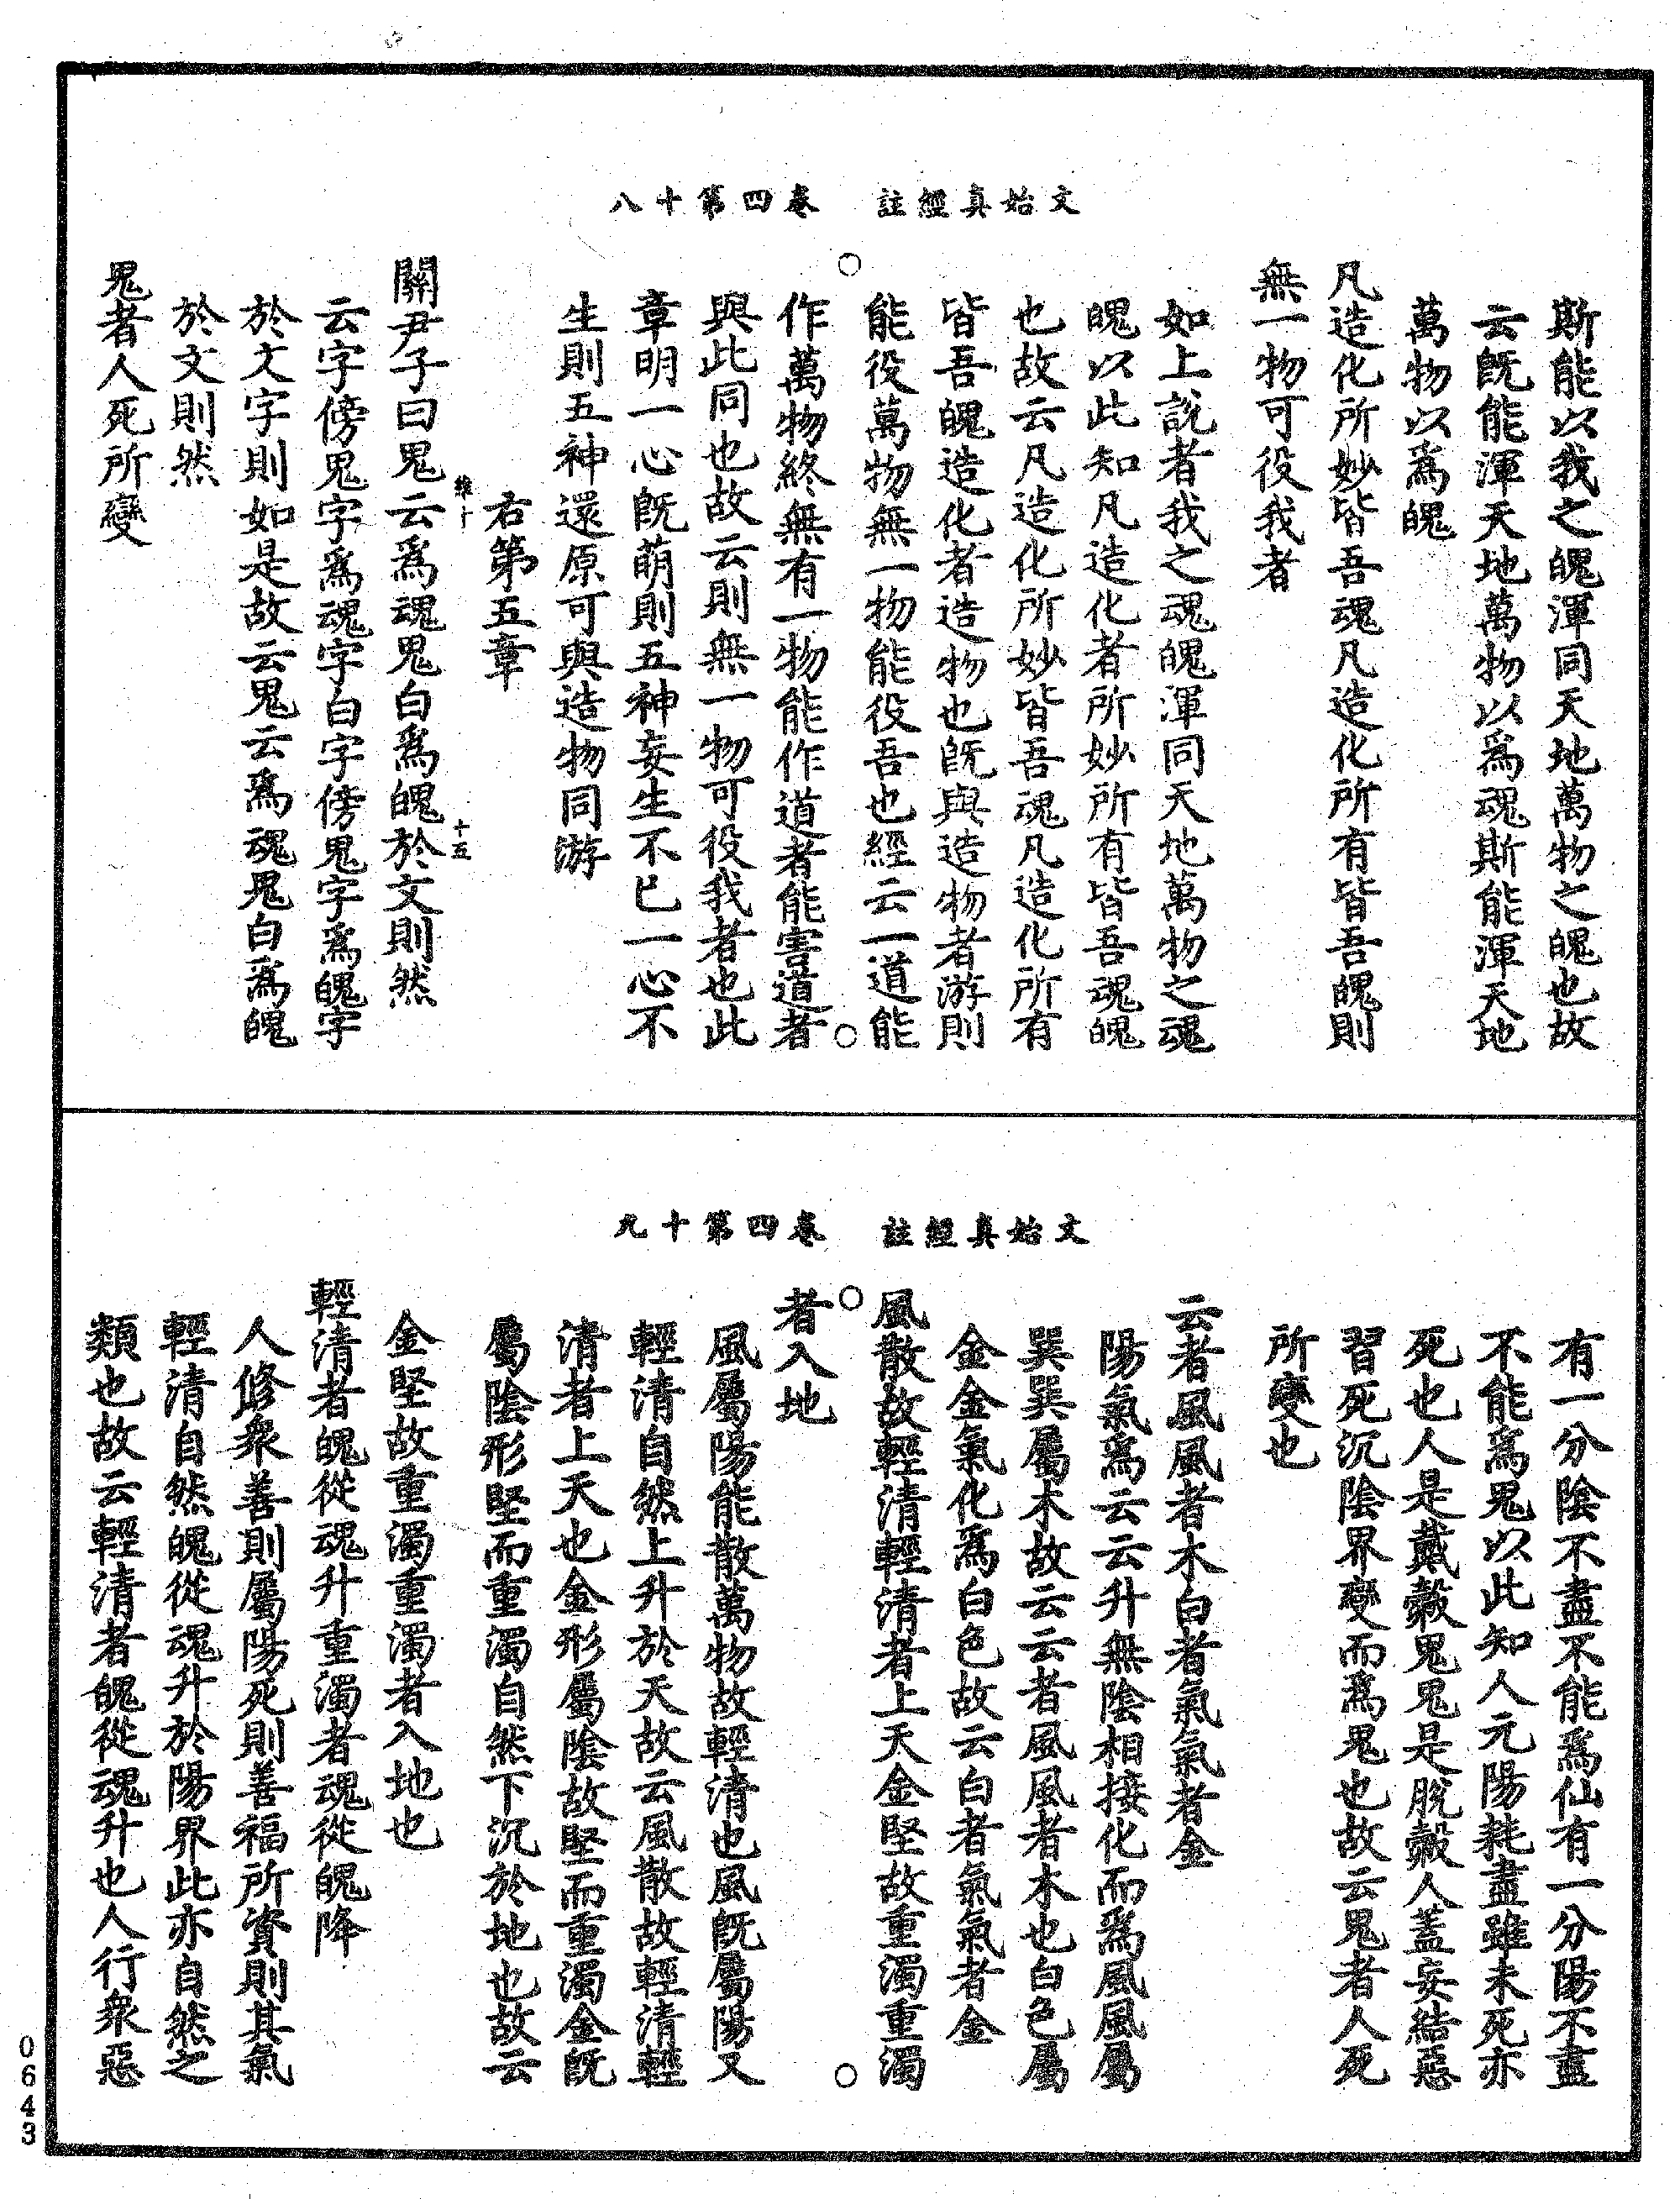 文始真經註　卷四第十八
斯能以我之魄渾同天地萬物之魄也故
云既能渾天地萬物以爲魂斯能渾天地
萬物以爲魄
凡造化所妙皆吾魂凡造化所有皆吾魄則
無一物可役我者
如上說者我之魂魄渾同天地萬物之魂
魄以此知凡造化者所妙所有皆吾魂魄
也故云凡造化所妙皆吾魂凡造化所有
皆吾魄造化者造物也既與造物者游則
能役萬物無一物能役吾也經云一道能
作萬物終無有一物能作道者能害道者
與此同也故云則無一物可役我者也此
章明一心既萌則五神妄生不已一心不
生則五神還原可與造物同游
右第五章
關尹子曰鬼云爲魂鬼白爲魄於文則然
云字傍鬼字爲魂字白字傍鬼字爲魄字
於文字則如是故云鬼云爲魂鬼白爲魄
於文則然
鬼者人死所變
文始真經註　卷四第十九
有一分陰不盡不能爲仙有一分陽不盡
不能爲鬼以此知人元陽耗盡雖未死亦
死也人是戴縠鬼鬼是脫縠人蓋妄結惡
習死沉陰界變而爲鬼也故云鬼者人死
所變也
云者風風者木白者氣氣者金
陽氣爲云云升無陰相接化而爲風風屬
巽巽屬木故云云者風風者木也白色屬
金金氣化爲白色故云白者氣氣者金
風散故輕清輕清者上天金堅故重濁重濁
者入地
風屬陽能散萬物故輕清也風既屬陽又
輕清自然上升於天故云風散故輕清輕
清者上天也金形屬陰故堅而重濁金既
屬陰形堅而重濁自然下沉於地也故云
金堅故重濁重濁者入地也
輕清者魄從魂升重濁者魂從魄降
人修衆善則屬陽死則善福所資則其氣
輕清自然魄從魂升於陽界此亦自然之
類也故云輕清者魄從魂升也人行衆惡
0643